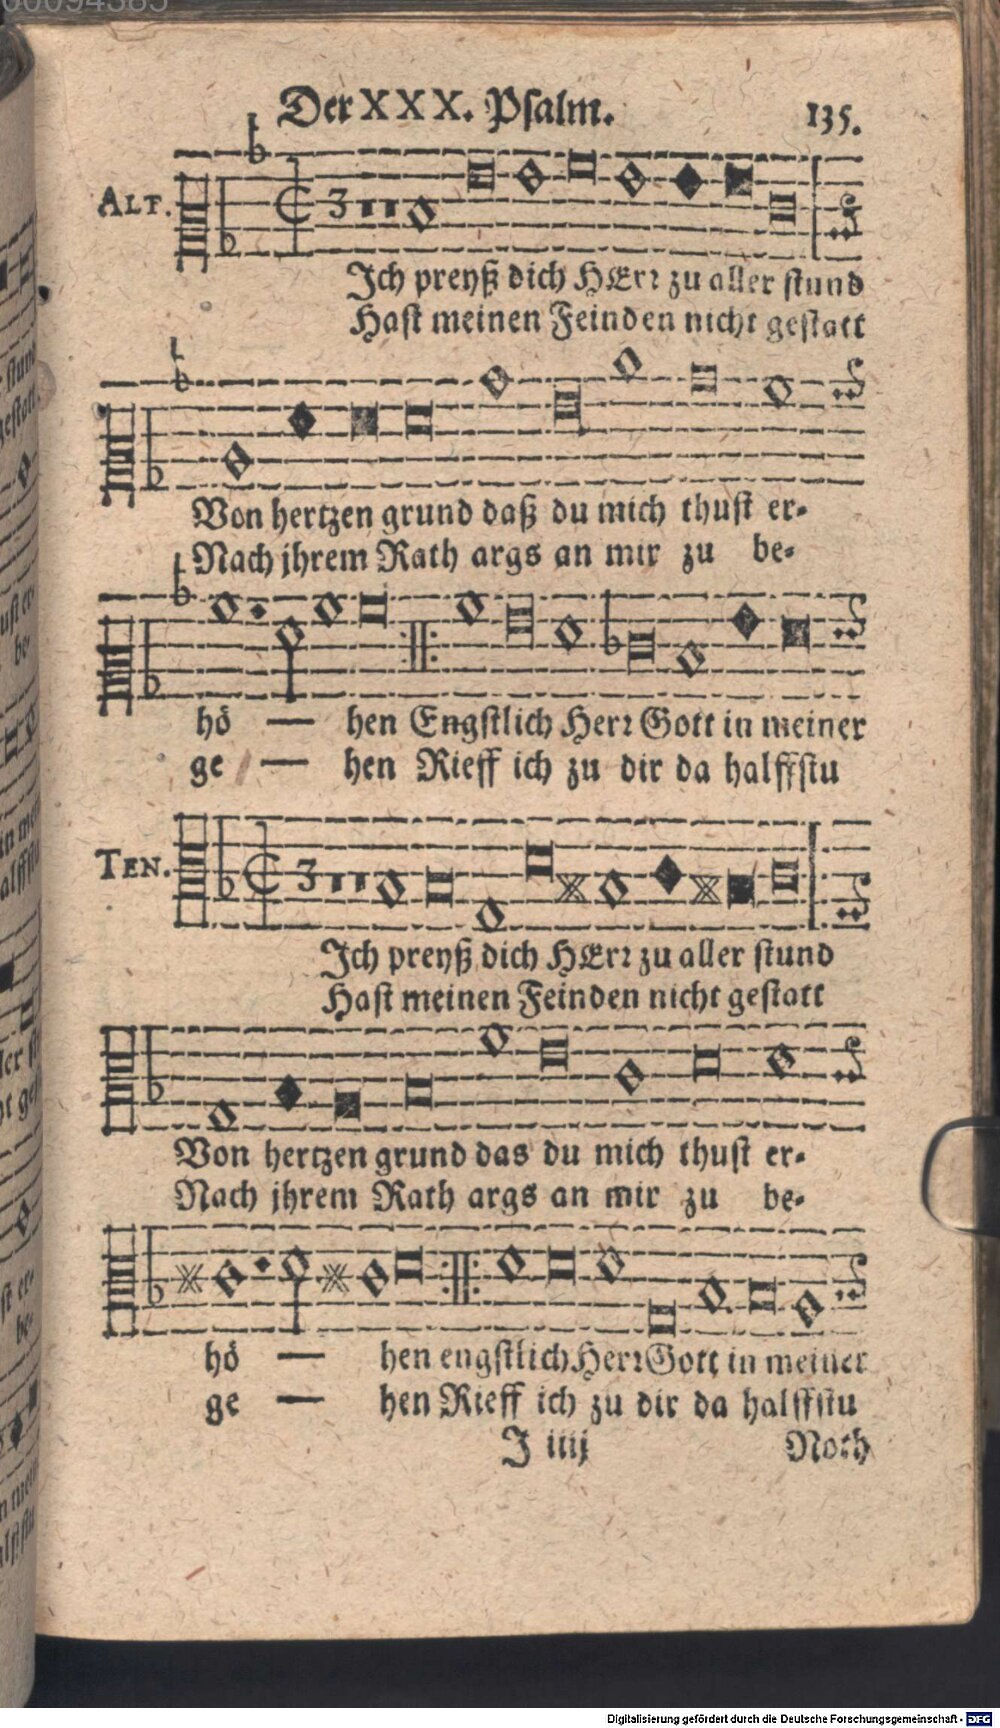 00094385
Der XXX. Psalm. 135.
ALT.
Ich preyß dich HErr zu aller stund
Hast meinen Feinden nicht gestatt
Von hertzen grund daß du mich thust er-
Nach jhrem Rath args an mir zu be-
hö — hen Engstlich Herr Gott in meiner
ge — hen Rieff ich zu dir da halffstu
TEN.
Ich preyß dich HErr zu aller stund
Hast meinen Feinden nicht gestatt
Von hertzen grund das du mich thust er-
Nach jhrem Rath args an mir zu be-
hö — hen engstlich Herr Gott in meiner
ge — hen Rieff ich zu dir da halffstu
J iiij Noth
Digitalisierung gefördert durch die Deutsche Forschungsgemeinschaft - DFG